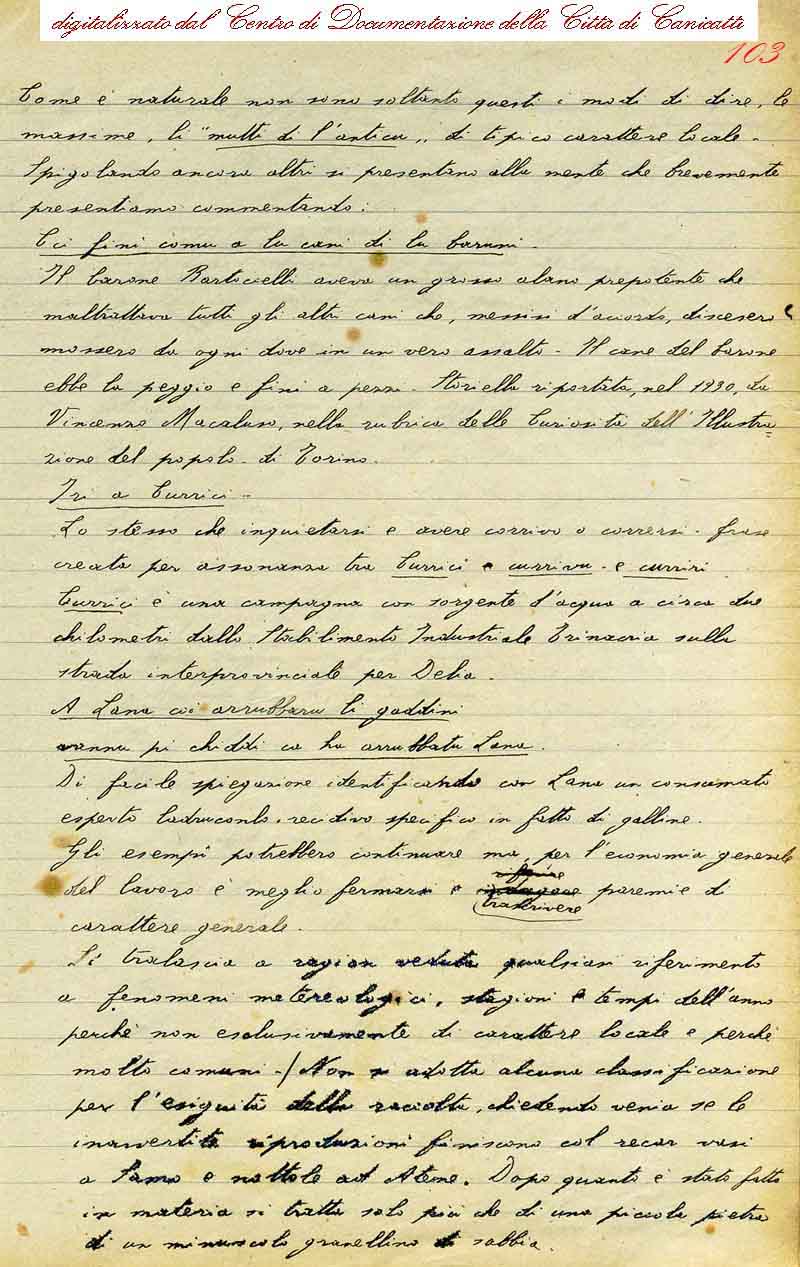 digitalizzato dal Centro di Documentazione della Città di Canicattì
103
Come è naturale non sono soltanto questi i modi di dire, le
massime, li "mutti di l'anticu,, di tipico carattere locale.
Spigolando ancora altri si presentano alla mente che brevemente
presentiamo commentando:
Cci finì comu a lu cani di lu baruni.
Il barone Bartoccelli aveva un grosso alano prepotente che
maltrattava tutti gli altri cani che, messisi d'accordo, discesero
mossero da ogni dove in un vero assalto. Il cane del barone
ebbe la peggio e finì a pezzi. Storiella riportata, nel 1930, da
Vincenzo Macaluso, nella rubrica delle Curiosità dell'Illustra=
zione del popolo di Torino.
Iri a Currici.
Lo stesso che inquietarsi e avere corrivo o corrersi. frase
creata per assonanza tra Currici e currivu e curriri
Currici è una campagna con sorgente d'acqua a circa due
chilometri dallo Stabilimento Industriale Trinacria sulla
strada interprovinciale per Delia.
A Lana cci arrubbaru li gaddini
vannu pi chiddi ca ha arrubbatu Lana.
Di facile spiegazione identificando con Lana un consumato
esperto ladruncolo, recidivo specifico in fatto di galline.
Gli esempi potrebbero continuare ma, per l'economia generale
del lavoro è meglio fermarsi e paremie di
trascrivere
carattere generale.
Si tralascia a ragion veduta qualsiasi riferimento
a fenomeni metereologici, stagioni e tempi dell'anno
perché non esclusivamente di carattere locale e perché
molto comuni. / Non si adotta alcuna classificazione
per l'esiguità della raccolta, chiedendo venia se le
inavvertite riproduzioni finiscono col recar vasi
a Samo e nottole ad Atene. Dopo quanto è stato fatto
in materia si tratta solo più che di una piccola pietra
di un minuscolo granellino di sabbia.